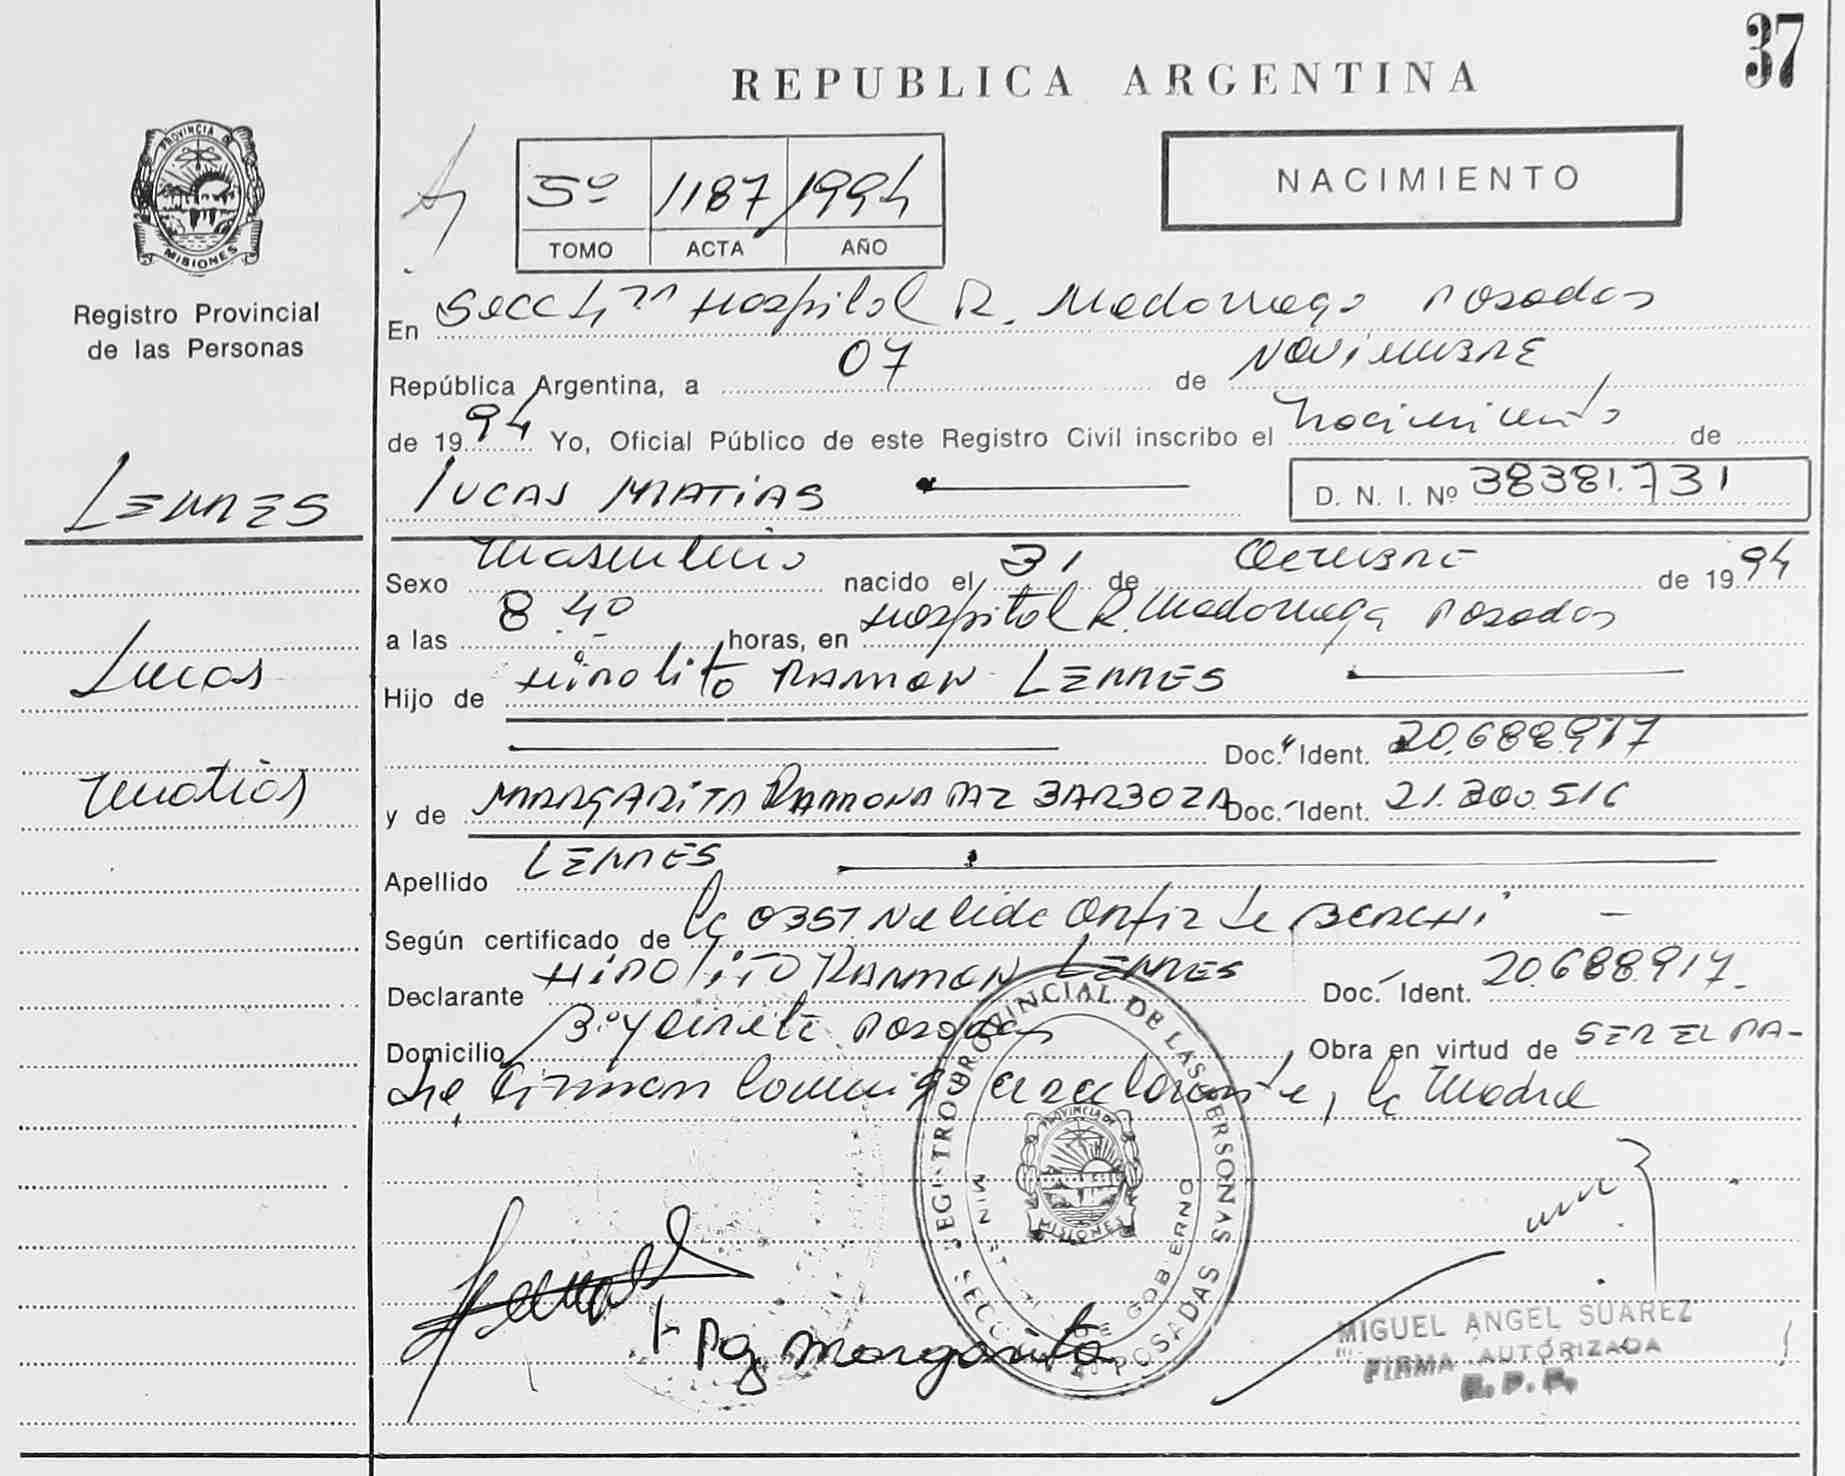 37
REPUBLICA ARGENTINA
PROVINCIA DE
MISIONES
Registro Provincial
de las Personas
5º 1187 1994
TOMO ACTA AÑO
NACIMIENTO
En Secc 4ª Hospital R. Madariaga Posadas
República Argentina, a 07 de NOVIEMBRE
de 1994 Yo, Oficial Público de este Registro Civil inscribo el Nacimiento de
LUCAS MATIAS
D. N. I. Nº 38381.731
Sexo Masculino nacido el 31 de OCTUBRE de 1994
a las 8 40 horas, en Hospital R. Madariaga Posadas
Hijo de HIPOLITO RAMON
Doc. Ident. 20.688.917
y de MARGARITA RAMONA PAZ BARBOZA Doc. Ident. 21.300.516
Apellido
Según certificado de la OBST Nelida de
Declarante HIPOLITO RAMON Doc. Ident. 20.688.917
Domicilio Bº Yacireta Posadas, Obra en virtud de SER EL PA-
dre, firman conmigo declarante, la Madre
Lucas
Matias
REGISTRO PROVINCIAL DE LAS PERSONAS
MINISTERIO DE GOBIERNO
PROVINCIA DE
MISIONES
SECC POSADAS
Paz Margarita
MIGUEL ANGEL SUAREZ
FIRMA AUTORIZADA
R. P. P.